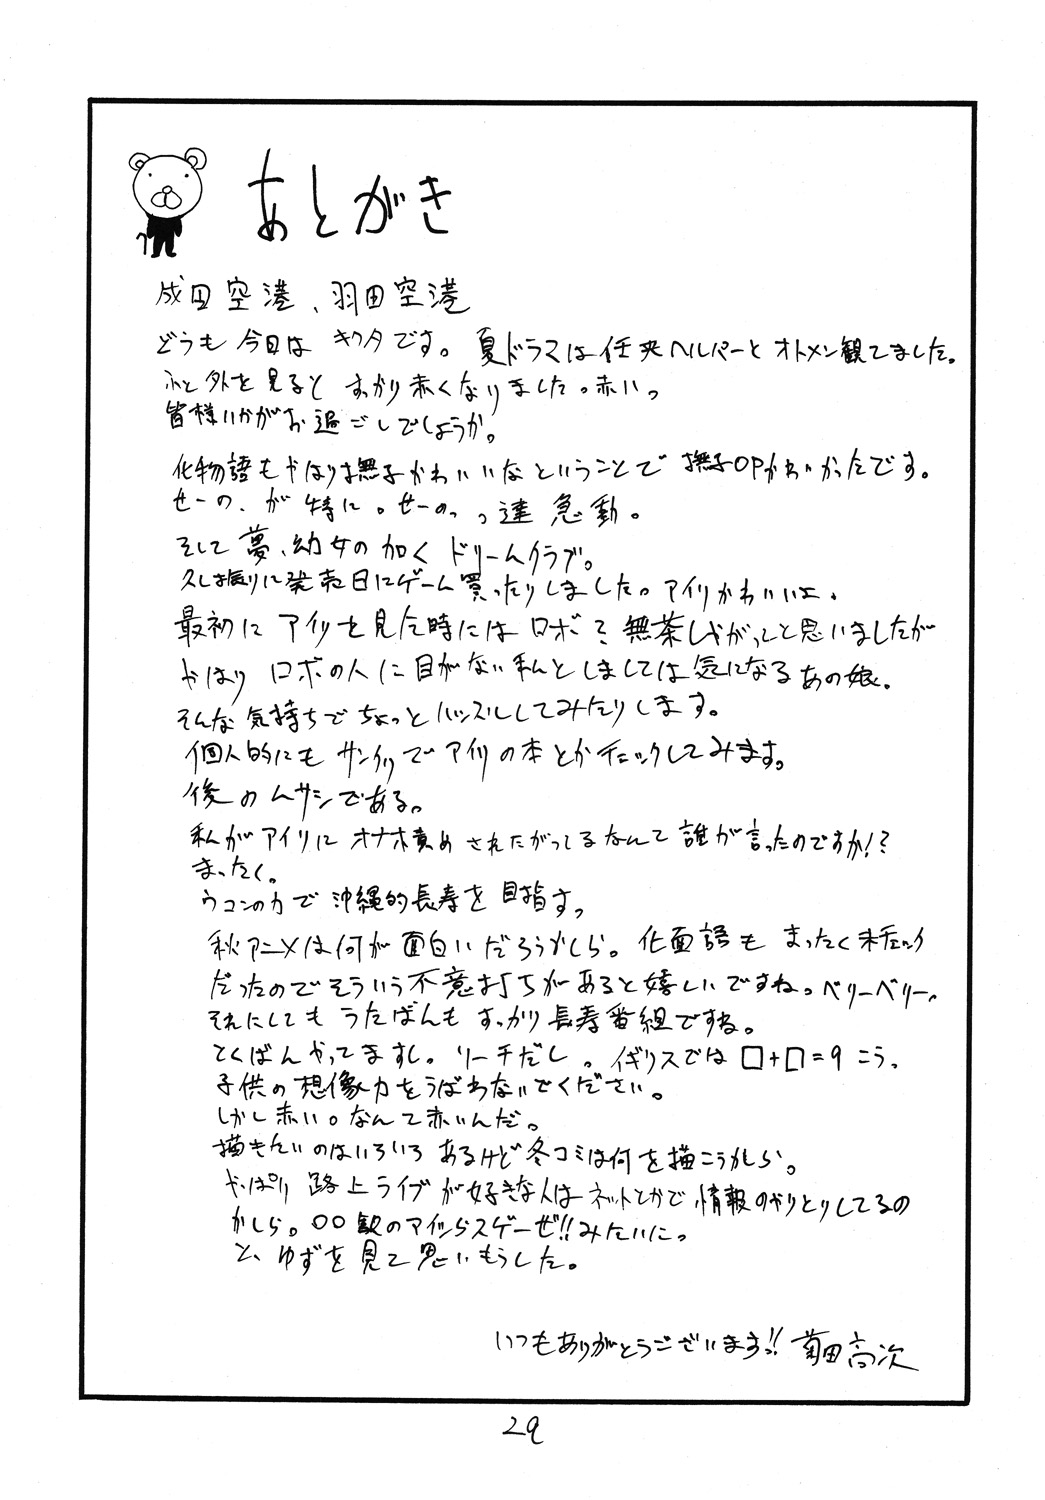 あとがき
成田空港、羽田空港
どうも今日は キクタです。夏ドラマは任侠ヘルパーとオトメン観てました。
ふと外を見ると すっかり赤くなりました。赤いっ
皆様いかがお過ごしでしょうか。
化物語もやはり撫子かわいいなということで 撫子OPかわいかったです。
せーの、が特に。せーのっ
そして夢、幼女の如く ドリームクラブ。
久し振りに発売日にゲーム買ったりしました。アイリかわいいよ、
最初に アイリを見た時には ロボ?無茶しやがってと思いましたが
やはり ロボの人に目がない私としましては気になるあの娘。
そんな気持ちでちょっとハッスルしてみたりします。
個人的にも サンクリでアイリの本とかチェックしてみます。
後のムサシである。
私がアイリに オナホ責めされたがってるなんて誰が言ったのですか!?
まったく。
ウコンの力で 沖縄的長寿を目指すっ
秋アニメは何が面白いだろうかしら。化物語も まったく未チェック
だったのでそういう不意打ちがあると嬉しいですね。ベリーベリー。
それにしても うたばんも すっかり長寿番組ですね。
とくばんやってますし。リーチだし。イギリスでは □+□=9 こうっ
子供の想像力をうばわないでください。
しかし赤い。なんて赤いんだ。
描きたいのはいろいろ あるけど冬コミは何を描こうかしら。
やっぱり 路上ライブが好きな人はネットとかで情報のやりとりしてるの
かしら。〇〇駅のアイツらスゲーぜ!!みたいにっ
と、ゆずを見て思いもうした。
いつもありがとうございますっ!! 菊田高次
29